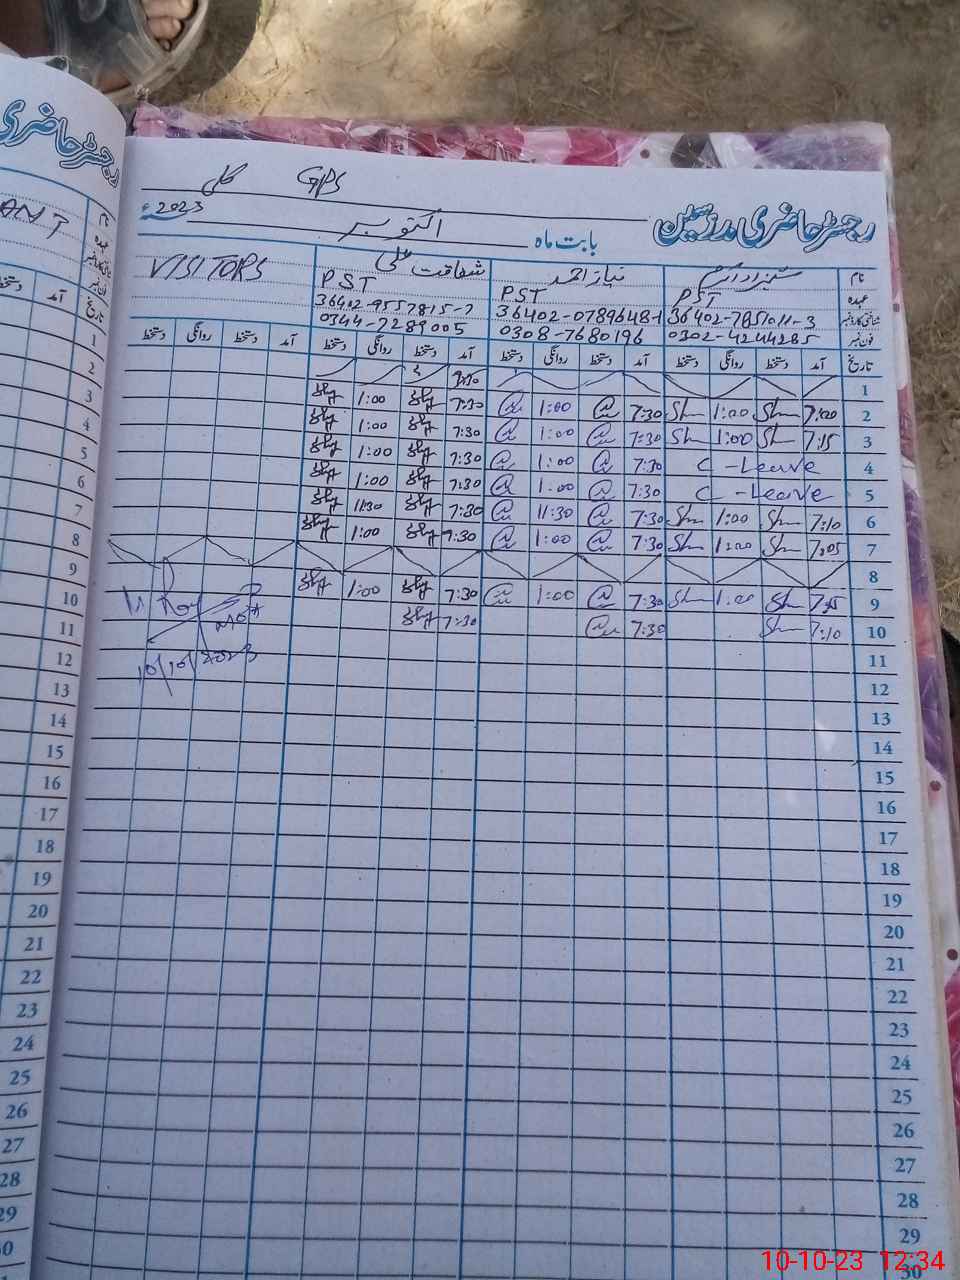 رجسٹر حاضری
رجسٹر حاضری مدرسین GPS
بابت ماہ اکتوبر 2023ء
نام شہزاد اکرم نیاز احمد شفاقت علی VISITORS
عہدہ PST PST PST
شناختی کارڈ نمبر 36402-7851011-3 36402-0789648-1 36402-9557815-7
فون نمبر 0302-4244285 0308-7680196 0344-7289005
تاریخ آمد دستخط روانگی دستخط آمد دستخط روانگی دستخط آمد دستخط روانگی دستخط آمد دستخط روانگی دستخط
1
2 7:00 1:00 7:30 1:00 7:30 1:00
3 7:15 1:00 7:30 1:00 7:30 1:00
4 C-Leave 7:30 1:00 7:30 1:00
5 C-Leave 7:30 1:00 7:30 1:00
6 7:10 1:00 7:30 11:30 7:30 11:30
7 7:05 1:00 7:30 1:00 7:30 1:00
8
9 7:15 1:00 7:30 1:00 7:30 1:00
10 7:10 7:30 7:30
10/10/2023
11
12
13
14
15
16
17
18
19
20
21
22
23
24
25
26
27
28
29
30
نام
عہدہ
تاریخ
آمد
1
2
3
4
5
6
7
8
9
10
11
12
13
14
15
16
17
18
19
20
21
22
23
24
25
26
27
28
29
10-10-23 12:34